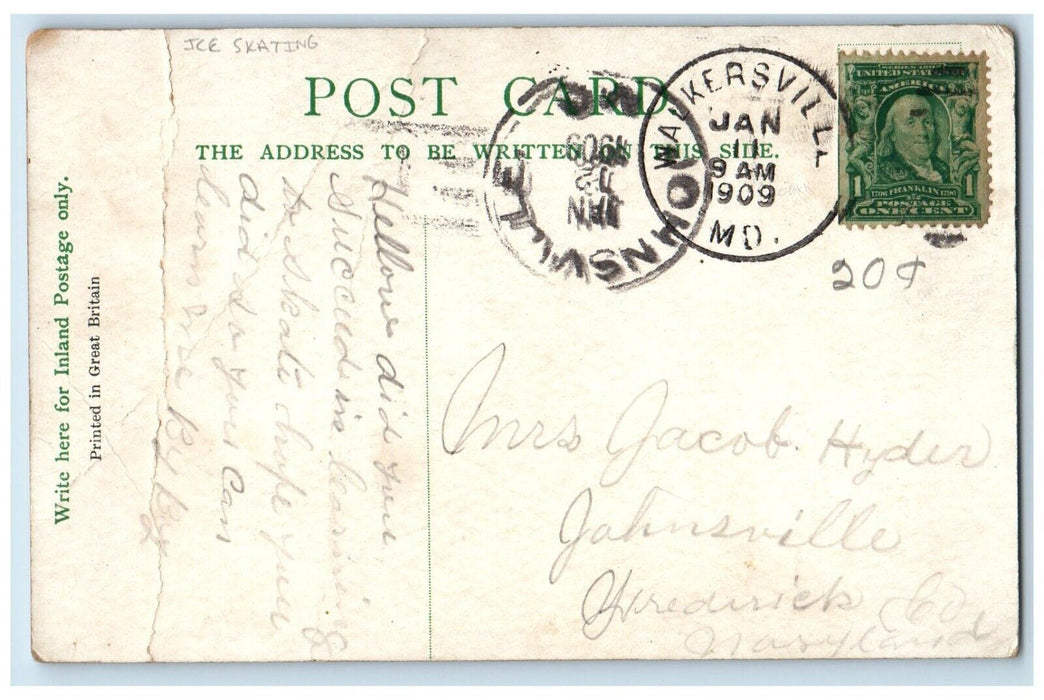 ICE SKATING
POST CARD.
THE ADDRESS TO BE WRITTEN ON THIS SIDE.
Write here for Inland Postage only.
Printed in Great Britain
Hellow did you
Succeed in learning
to skate hope you
did so you Can
learn me By By
JOHNSVILLE
JAN
1909
MD.
WALKERSVILLE
JAN
11
9 AM
1909
MD.
UNITED STATES OF
AMERICA
1 1
1706 FRANKLIN 1790
POSTAGE
ONE CENT
20¢
Mrs Jacob. Hyder
Johnsville
Frederick Co
Maryland